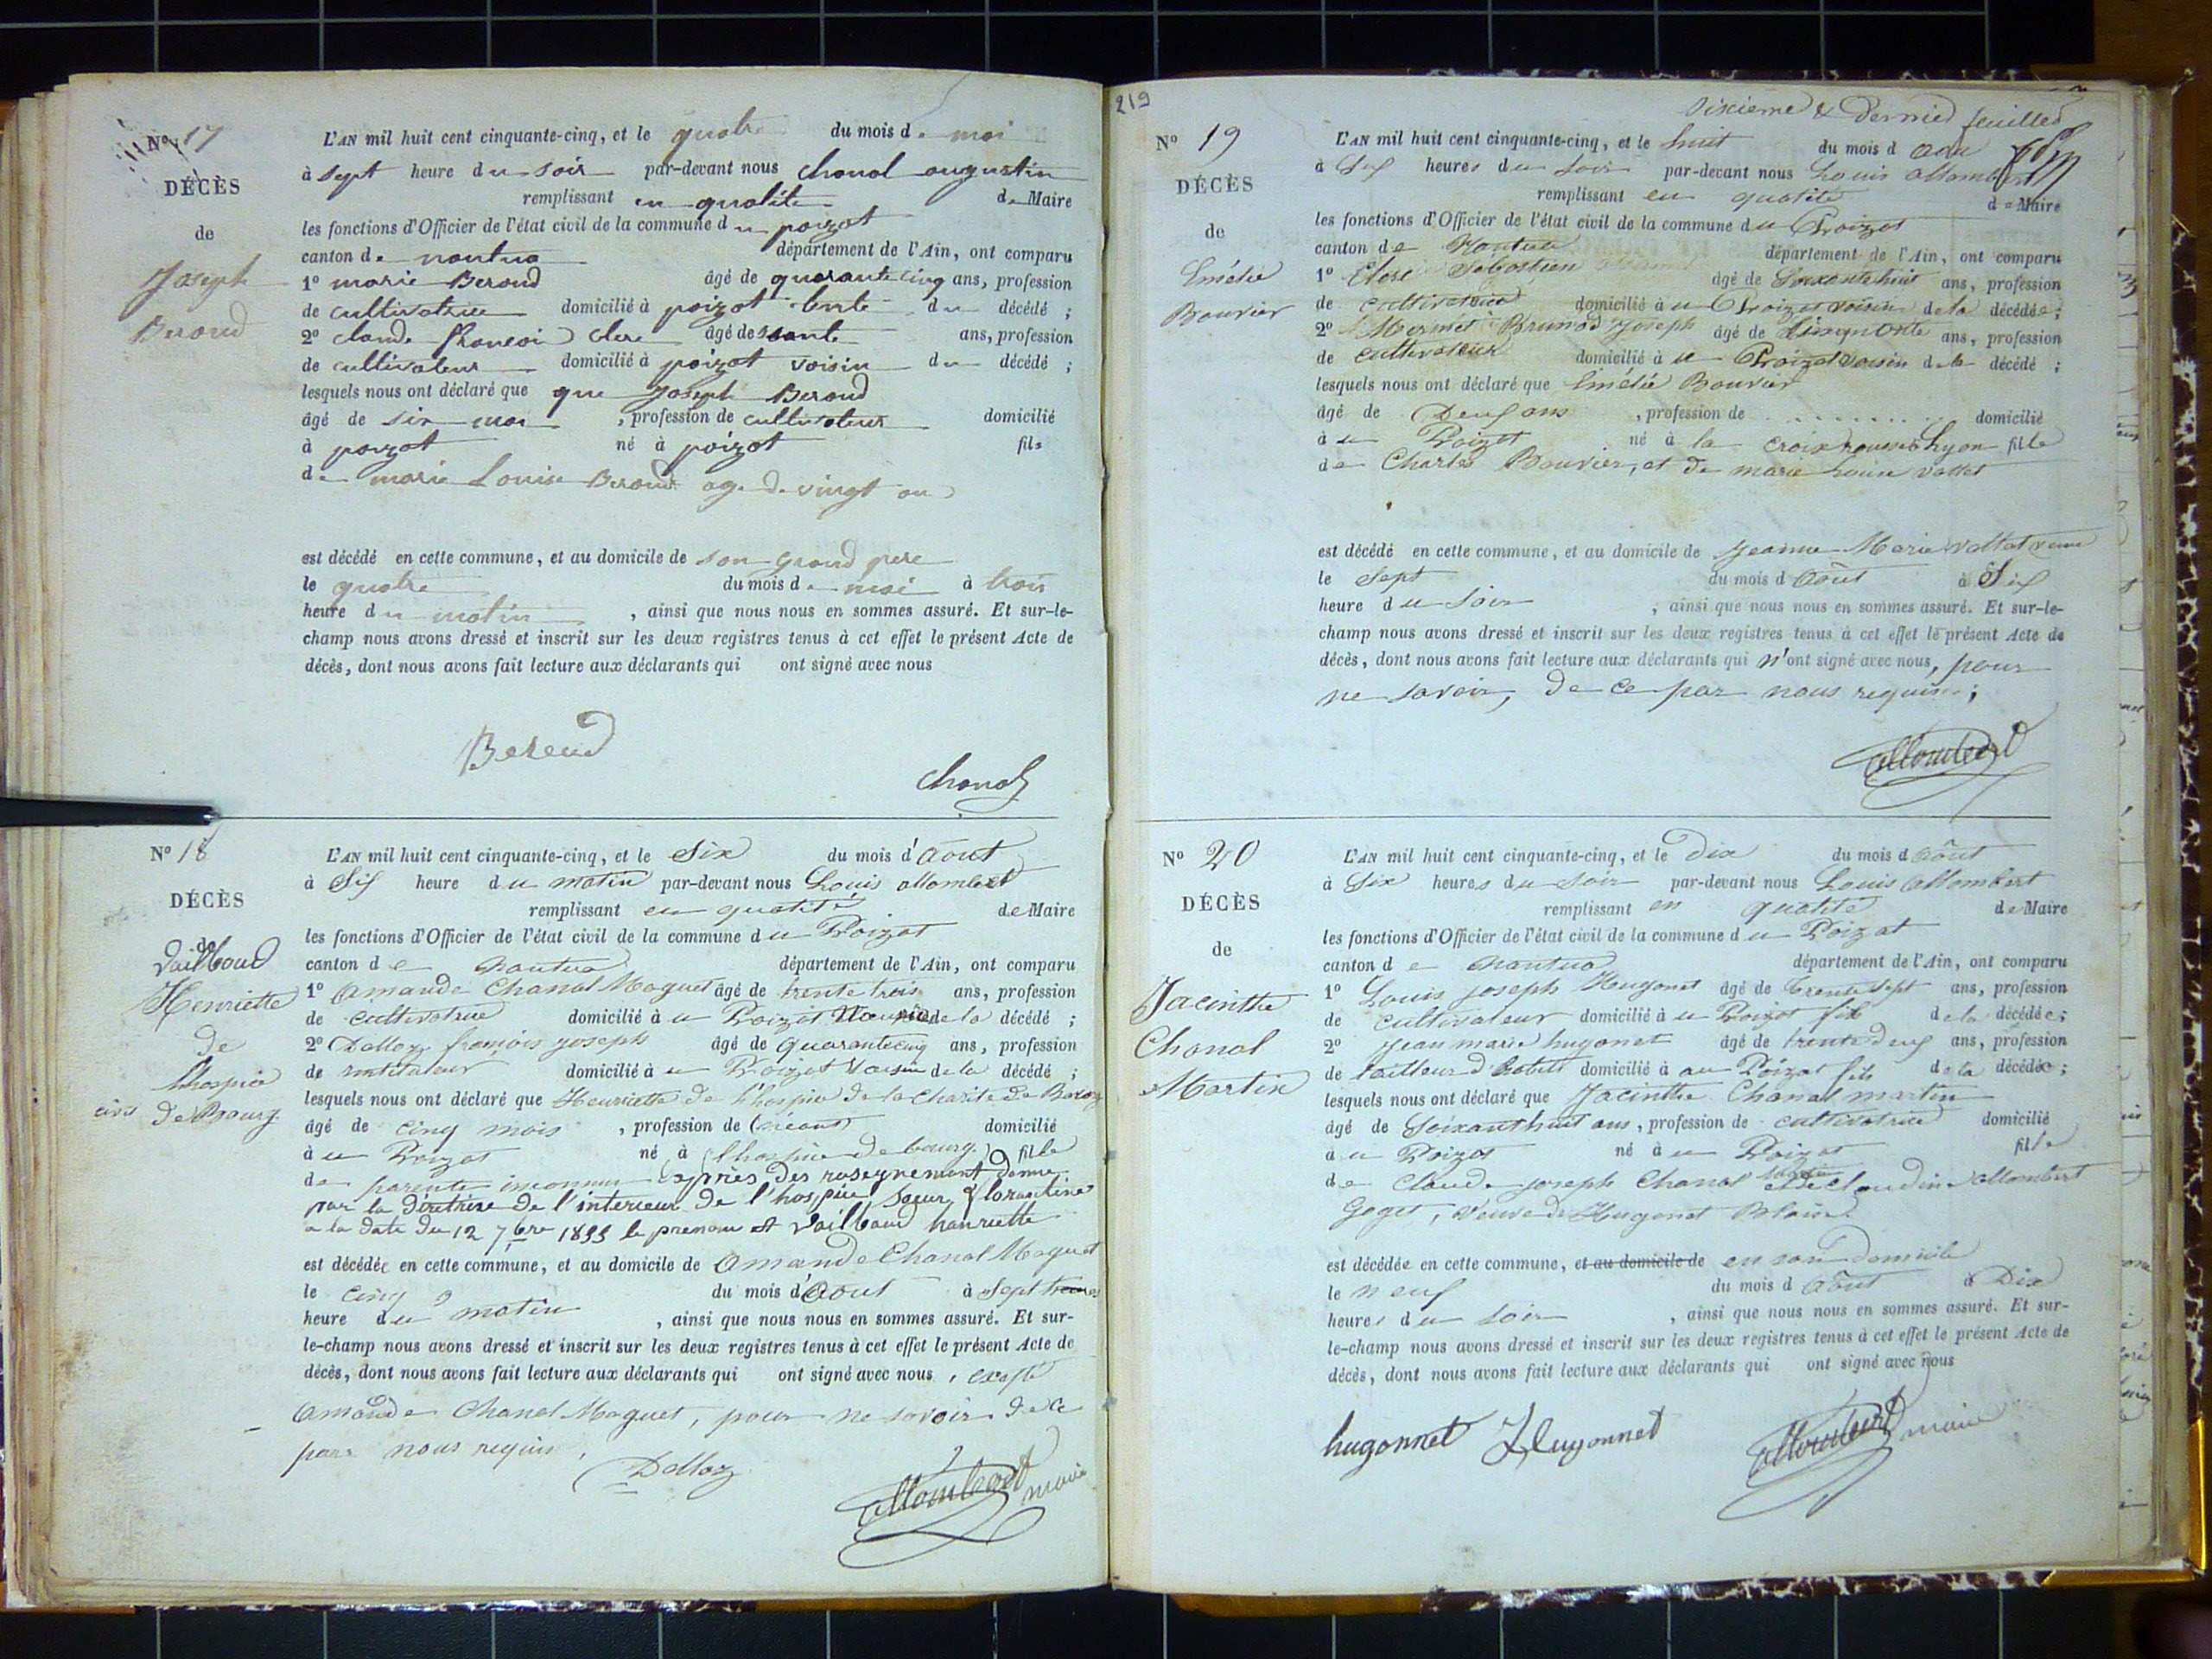 Nº 17
DÉCÈS
de
Joseph
Beroud
L'AN mil huit cent cinquante-cinq, et le quatre du mois de mai
à sept heure du soir par-devant nous chanal augustin
remplissant en qualite de Maire
les fonctions d'Officier de l'état civil de la commune du poizat
canton de nantua département de l'Ain, ont comparu
1º marie Beroud âgé de quarante cinq ans, profession
de cultivatrice domicilié à poizat tente du décédé ;
2º claude francois clerc âgé de ssante ans, profession
de cultivateur domicilié à poizat voisin du décédé ;
lesquels nous ont déclaré que que Joseph Beroud
âgé de six moi , profession de cultivateur domicilié
à poizat né à poizat fils
de marie Louise Beroud age de vingt an
est décédé en cette commune, et au domicile de son grand pere
le quatre du mois de mai à trois
heure du matin , ainsi que nous nous en sommes assuré. Et sur-le-
champ nous avons dressé et inscrit sur les deux registres tenus à cet effet le présent Acte de
décès, dont nous avons fait lecture aux déclarants qui ont signé avec nous
Beroud
Chanal
Nº 18
DÉCÈS
de
Vailloud
Henriette
de
l'hospice
civil de Bourg
L'AN mil huit cent cinquante-cinq, et le Six du mois d'Août
à Six heure du matin par-devant nous Louis allombert
remplissant en qualité de Maire
les fonctions d'Officier de l'état civil de la commune du Poizat
canton de Nantua département de l'Ain, ont comparu
1º Amande Chanal Moguet âgé de trente trois ans, profession
de cultivatrice domicilié à u Poizat Nourrice de la décédé ;
2º Dalloz françois Joseph âgé de quarante cinq ans, profession
de instituteur domicilié à u Poizat Voisin de la décédé ;
lesquels nous ont déclaré que Henriette de l'hospice de la Charité de Bourg
âgé de cinq mois , profession de (néant) domicilié
à u Poizat né à l'hospice de bourg fille
de parents inconnus après des rosegnement donné
par la diretrise de l'interieur de l'hospice soeur
a la date du 12 7bre 1855 le prenom et Vailloud hanriette
est décédée en cette commune, et au domicile de Amande Chanal Moguet
le cinq du mois d'Août à Sept heures
heure du matin , ainsi que nous nous en sommes assuré. Et sur-
le-champ nous avons dressé et inscrit sur les deux registres tenus à cet effet le présent Acte de
décès, dont nous avons fait lecture aux déclarants qui ont signé avec nous, excepté
Amande Chanal Moguet, pour ne savoir de ce
par nous requis.
Dalloz
allombert maire
219
Sixieme & Dernied feuilled
Nº 19
DÉCÈS
de
Emélie
Bouvier
L'AN mil huit cent cinquante-cinq, et le huit du mois d Aou
à Six heures du soir par-devant nous Louis allombert
remplissant en qualité de Maire
les fonctions d'Officier de l'état civil de la commune du Poizat
canton de Nantua département de l'Ain, ont comparu
1º Clerc Sebastien âgé de Soixante huit ans, profession
de cultivateur domicilié à u Poizat voisin de la décédée ;
2º Mermet Brunod Joseph âgé de Cinquante ans, profession
de cultivateur domicilié à u Poizat voisin de la décédé ;
lesquels nous ont déclaré que Emélie Bouvier
âgé de Deux ans , profession de ........ domicilié
à u Poizat né à la croix rousse Lyon fille
de Charles Bouvier, et de marie Louise Vallet
est décédé en cette commune, et au domicile de Jeanne Marie vallet veuve
le Sept du mois d Août à Six
heure du soir , ainsi que nous nous en sommes assuré. Et sur-le-
champ nous avons dressé et inscrit sur les deux registres tenus à cet effet le présent Acte de
décès, dont nous avons fait lecture aux déclarants qui n'ont signé avec nous, pour
ne savoir, de ce par nous requis ;
allombert
Nº 20
DÉCÈS
de
Jacinthe
Chanal
Martin
L'AN mil huit cent cinquante-cinq, et le Dix du mois d août
à Six heures du soir par-devant nous Louis allombert
remplissant en qualité de Maire
les fonctions d'Officier de l'état civil de la commune du Poizat
canton de Nantua département de l'Ain, ont comparu
1º Louis joseph Hugonet âgé de trente sept ans, profession
de cultivateur domicilié à u Poizat fils de la décédée ;
2º Jean marie hugonet âgé de trente deux ans, profession
de tailleur d'habits domicilié à au Poizat fils de la décédée ;
lesquels nous ont déclaré que Jacinthe Chanal martin
âgé de Soixant huit ans, profession de cultivatrice domicilié
à u Poizat né à u Poizat fille
de Claude joseph Chanal et de claudine allombert
Goget, veuve de Hugonet Blaise
est décédée en cette commune, et au domicile de en son domicile
le neuf du mois d Août à Dix
heures du soir , ainsi que nous nous en sommes assuré. Et sur-
le-champ nous avons dressé et inscrit sur les deux registres tenus à cet effet le présent Acte de
décès, dont nous avons fait lecture aux déclarants qui ont signé avec nous
hugonnet Hugonnet
allombert maire